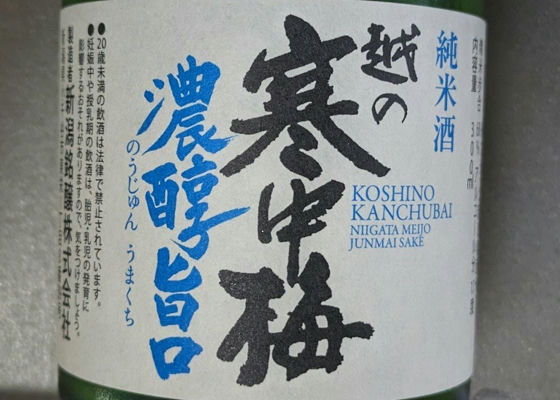 純米酒
越の
寒中梅
KOSHINO
KANCHUBAI
NIIGATA MEIJO
JUNMAI SAKÉ
濃醇旨口
のうじゅん うまくち
●20歳未満の飲酒は法律で禁止されています。
●妊娠中や授乳期の飲酒は、胎児・乳児の発育に
影響するおそれがありますので、気をつけましょう。
製造者 新潟銘醸株式会社
内容量 300ml